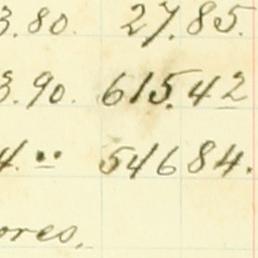 3.80. 27.85.
3.90. 615.42
4.•• 54684.
ores.